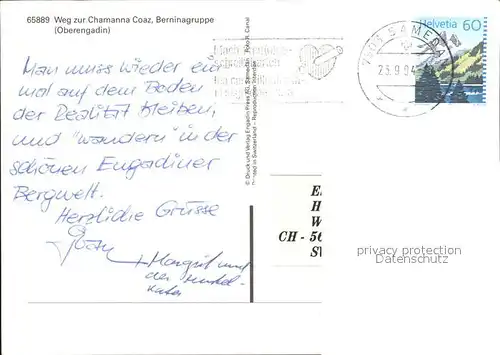 65889 Weg zur Chamanna Coaz, Berninagruppe
(Oberengadin)
Man muss wieder ein
mal auf dem Boden
der Realität bleiben,
und "wandern" in der
schönen Engadiner
Bergwelt.
Herzliche Grüsse
+ Margrit und
der
kater
© Druck und Verlag Engadin Press AG, Samedan Foto R. Canal
Printed in Switzerland - Reproduction
SAMEDA
23.9.94
Helvetia 60
E
H
W
CH - 56
SV
privacy protection
Datenschutz